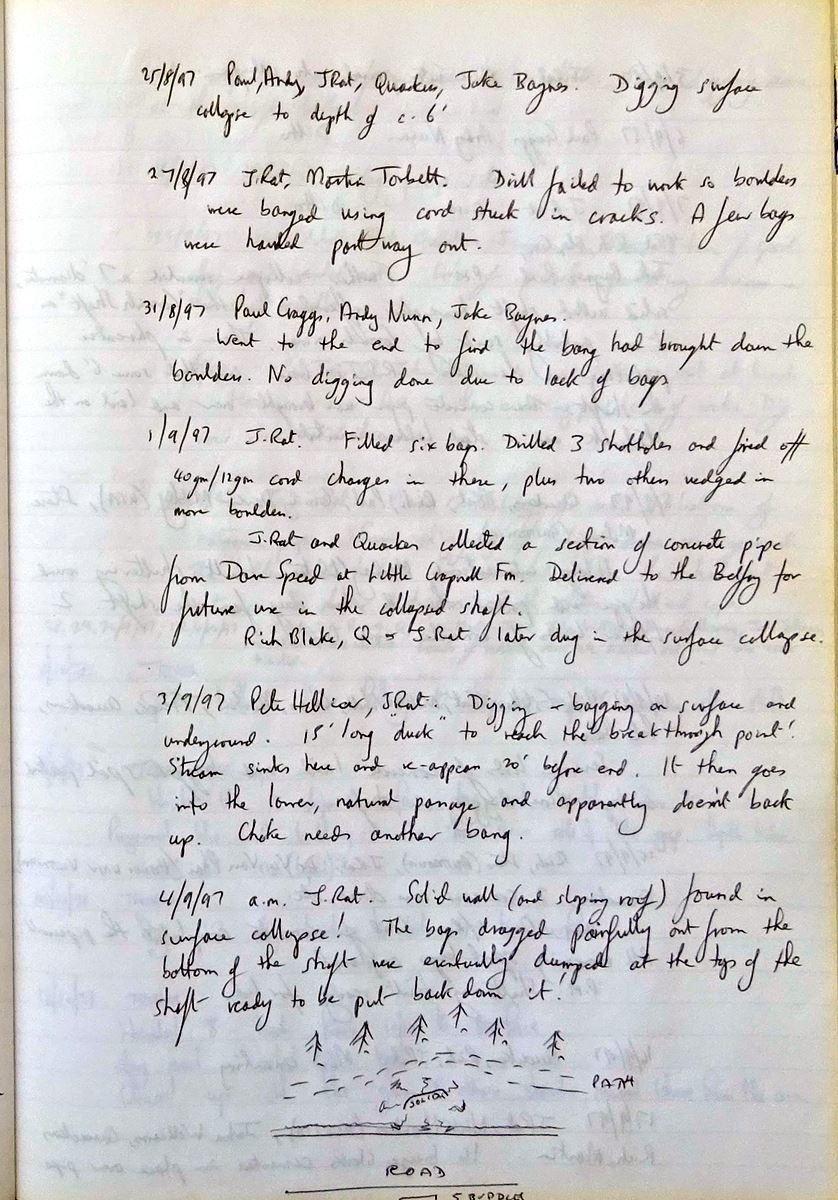 25/8/97 Paul, Andy, J.Rat, Quackers, Jake Baynes. Digging surface
collapse to depth of c. 6'
27/8/97 J.Rat, Martin Torbett. Drill failed to work so boulders
were banged using cord stuck in cracks. A few bags
were hauled part way out.
31/8/97 Paul Craggs, Andy Nunn, Jake Baynes.
Went to the end to find the bang had brought down the
boulders. No digging done due to lack of bags
1/9/97 J.Rat. Filled six bags. Drilled 3 shotholes and fired off
40gm/12gm cord charges in these, plus two others wedged in
more boulders.
J.Rat and Quackers collected a section of concrete pipe
from Dave Speed at Little Crapnell Fm. Delivered to the Belfry for
future use in the collapsed shaft.
Rich Blake, Q + J.Rat later dug in the surface collapse.
3/9/97 Pete Hellier, J.Rat. Digging + bagging on surface and
underground. 15' long "duck" to reach the breakthrough point!
Stream sinks here and re-appears 20' before end. It then goes
into the lower, natural passage and apparently doesn't back
up. Choke needs another bang.
4/9/97 a.m. J.Rat. Solid wall (and sloping roof) found in
surface collapse! The bags dragged painfully out from the
bottom of the shaft were eventually dumped at the top of the
shaft ready to be put back down it!
PATH
SOLID
ROAD
5 BUDDLES